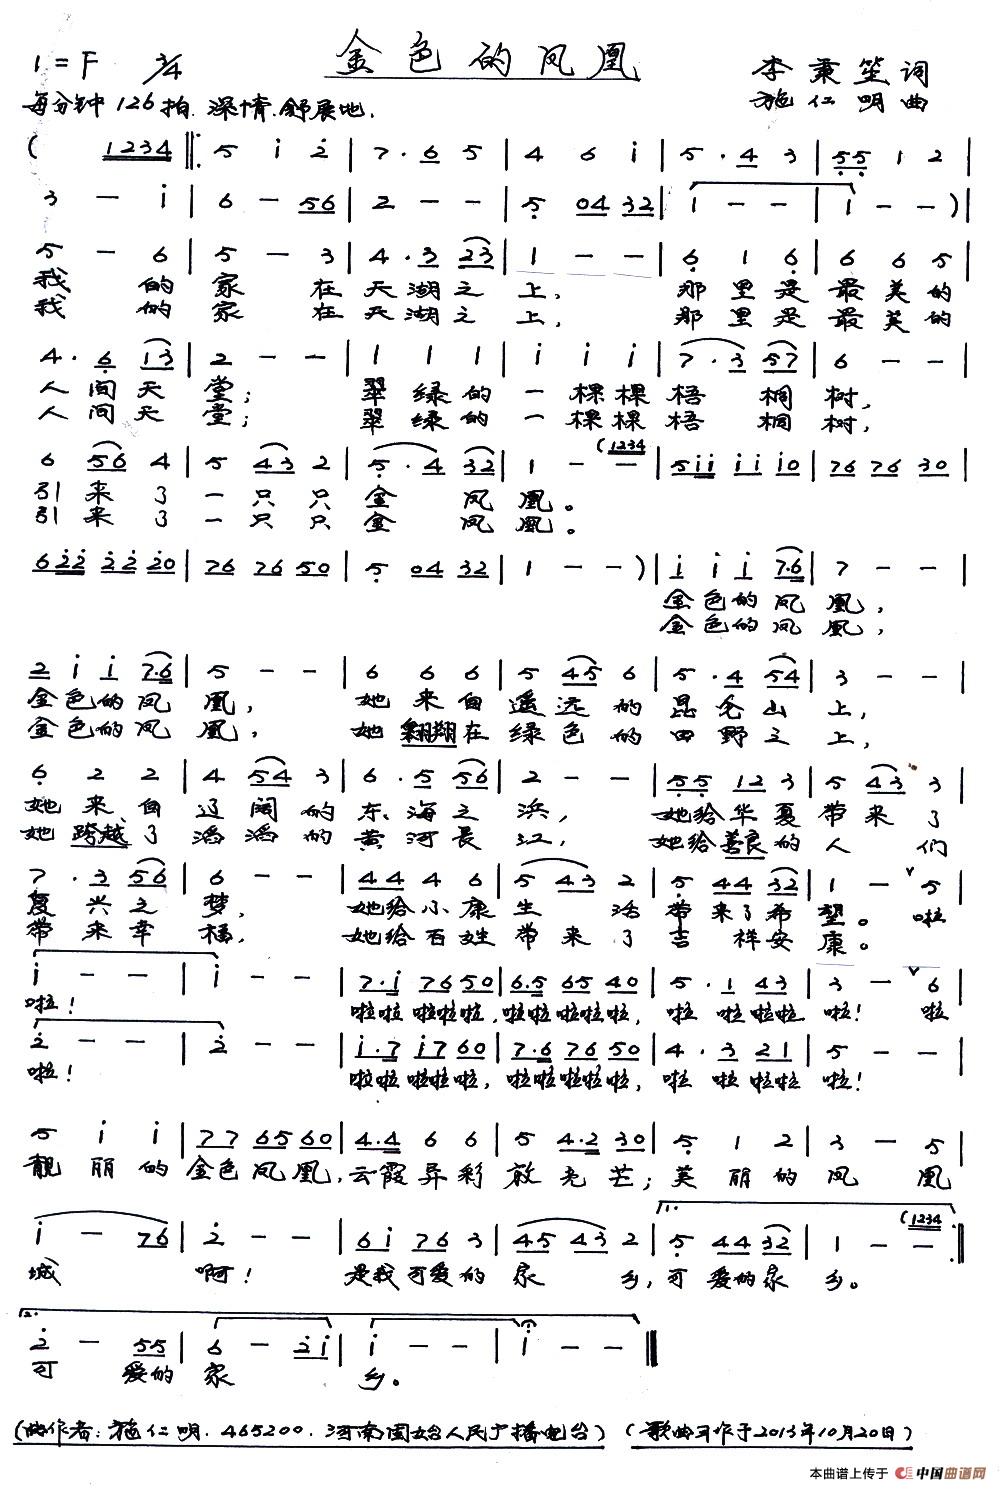 金色的凤凰
1=F 3/4
李秉笙词
每分钟126拍.深情.舒展地.
施仁明曲
( 1234 ‖: 5 i 2 | 7·6 5 | 4 6 i | 5·4 3 | 55 1 2 |
3 - i | 6 - 56 | 2 - - | 5 04 32 | 1 - - | 1 - - ) |
5 - 6 | 5 - 3 | 4·3 23 | 1 - - | 6 1 6 | 6 6 5 |
我的家在天湖之上,那里是最美的
我的家在天湖之上,那里是最美的
4·6 13 | 2 - - | 1 1 1 | i i i | 7·3 57 | 6 - - |
人间天堂;翠绿的一棵棵梧桐树,
人间天堂;翠绿的一棵棵梧桐树,
(1234
6 56 4 | 5 43 2 | 5·4 32 | 1 - - | 5ii ii i0 | 76 76 30 |
引来了一只只金凤凰。
引来了一只只金凤凰。
622 22 20 | 76 76 50 | 5 04 32 | 1 - - ) | i i i 7·6 | 7 - - |
金色的凤凰,
金色的凤凰,
2 i i 7·6 | 5 - - | 6 6 6 | 5 45 6 | 5·4 54 | 3 - - |
金色的凤凰,她来自遥远的昆仑山上,
金色的凤凰,她翱翔在绿色的田野之上,
6 2 2 | 4 54 3 | 6·5 56 | 2 - - | 55 12 3 | 5 43 3 |
她来自辽阔的东海之滨,她给华夏带来了
她跨越了滔滔的黄河长江,她给善良的人们
7·3 56 | 6 - - | 44 4 6 | 5 43 2 | 5 44 32 | 1 - 5 |
复兴之梦,她给小康生活带来了希望。啦
带来幸福,她给百姓带来了吉祥安康。
i - - | i - - | 7·i 76 50 | 6·5 65 40 | 5·1 43 | 3 - 6 |
啦!啦啦啦啦啦,啦啦啦啦啦,啦啦啦啦啦!啦
2 - - | 2 - - | i·7 i7 60 | 7·6 76 50 | 4·3 21 | 5 - - |
啦!啦啦啦啦啦,啦啦啦啦啦,啦啦啦啦啦!
5 i i | 77 65 60 | 4·4 6 6 | 5 4·2 30 | 5 1 2 | 3 - 5 |
靓丽的金色凤凰,云霞异彩放光芒;美丽的凤凰
1. (1234
i - 76 | 2 - - | 6i 76 3 | 45 43 2 | 5 44 32 | 1 - - :‖
城啊!是我可爱的家乡,可爱的家乡。
2.
2 - 55 | 6 - 2i | i - - | i - - ‖
可爱的家乡。
(曲作者:施仁明.465200.河南固始人民广播电台)(歌曲写作于2013年10月20日)
本曲谱上传于 中国曲谱网